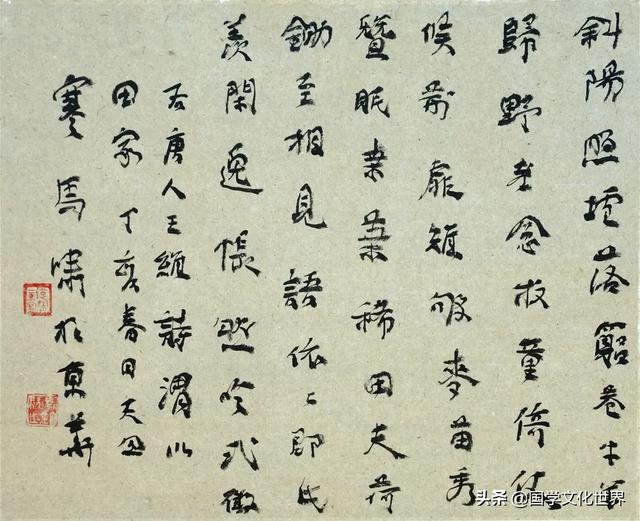 斜陽照墟落窮巷牛羊
歸野老念牧童倚仗
候荊扉雉雊麥苗秀
蠶眠桑葉稀田夫荷
鋤至相見語依々即此
羨閑逸悵然吟式微
右唐人王維詩渭川
田家丁亥春日天
寒馬嘯於東華
头条 @国学文化世界